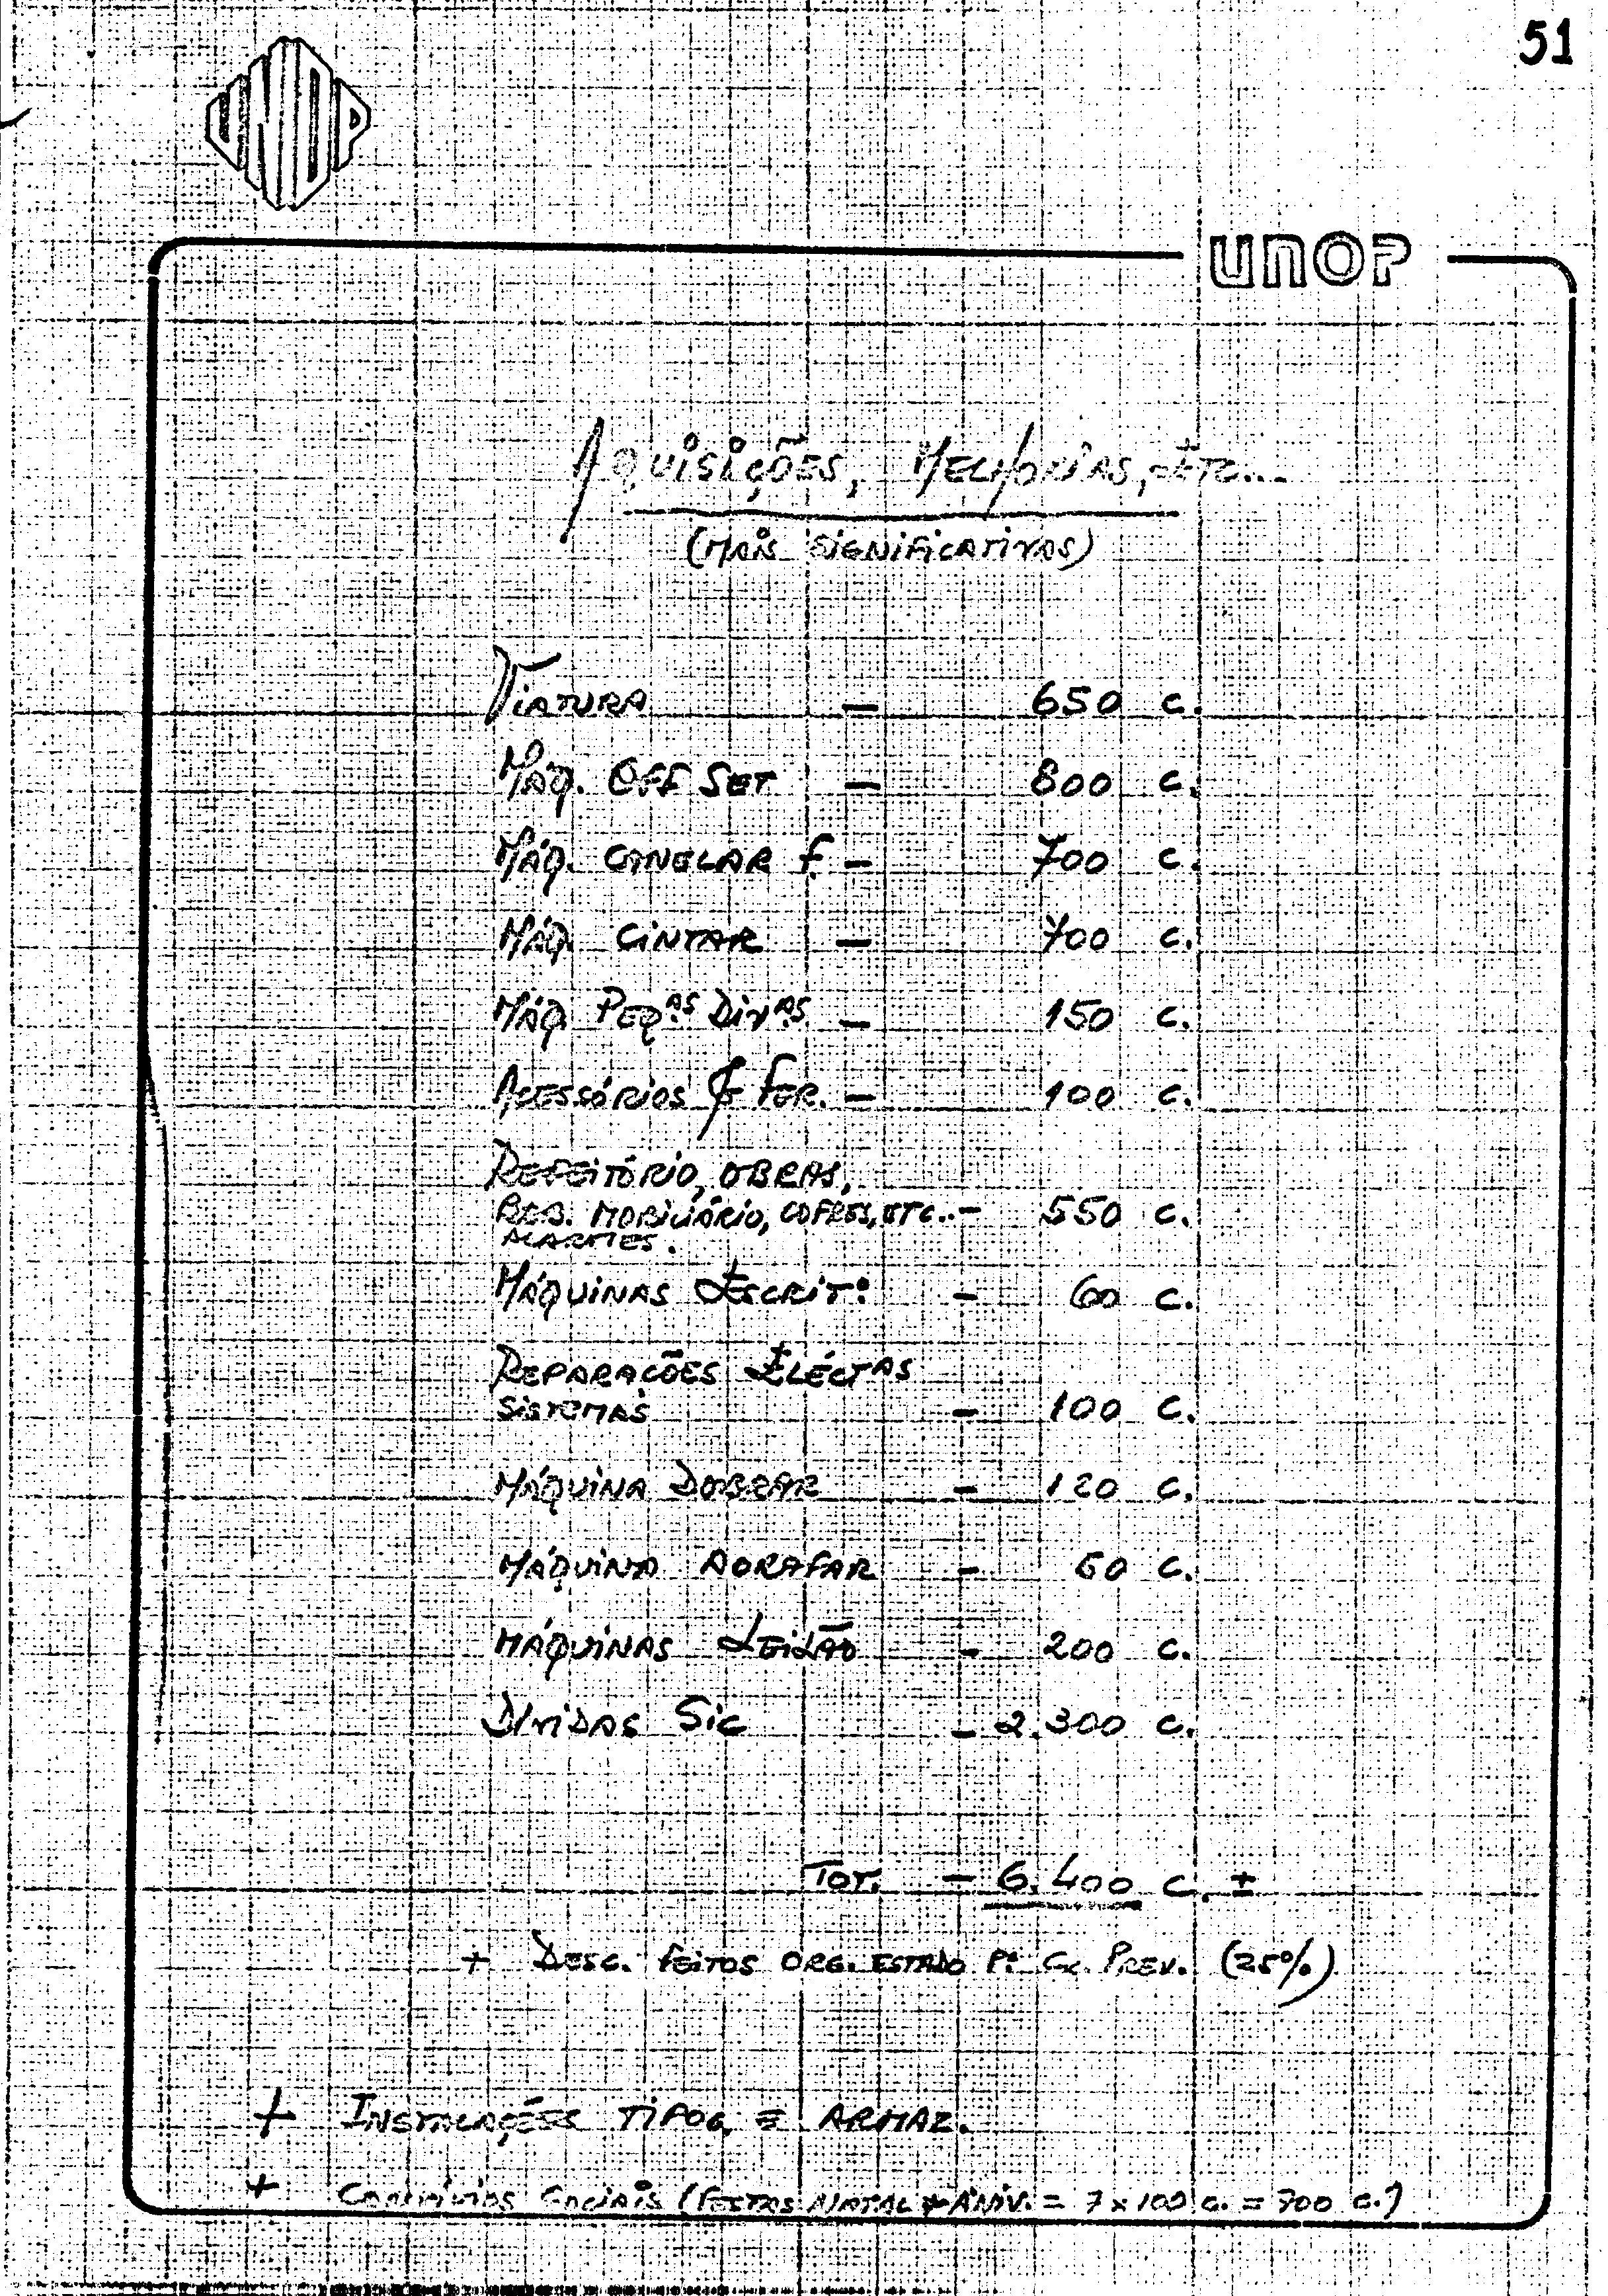 51
UNOP
UNOP
Aquisições, Melhorias, Etc...
(Mais Significativas)
Viatura — 650 c.
Máq. Off Set — 800 c.
Máq. Cinelar f. — 700 c.
Máq. Cintar — 700 c.
Máq. Peq.as Div.as — 150 c.
Acessórios & Fer. — 100 c.
Refeitório, Obras,
Mobiliário, Cofres, etc.. - 550 c.
Alarmes.
Máquinas Escrit. - 60 c.
Reparações Eléctas
Sistemas - 100 c.
Máquina Dobrar - 120 c.
Máquina Agrafar - 60 c.
Máquinas Leilão - 200 c.
Dividas Sic - 2.300 c.
Tot. - 6.400 c. ±
+ Desc. feitos Org. Estado P.ª Cx. Prev. (25%)
+ Instalações Tipog. e Armaz.
+ Convívios Sociais (Festas Natal + Aniv. = 7 x 100 c. = 700 c.)